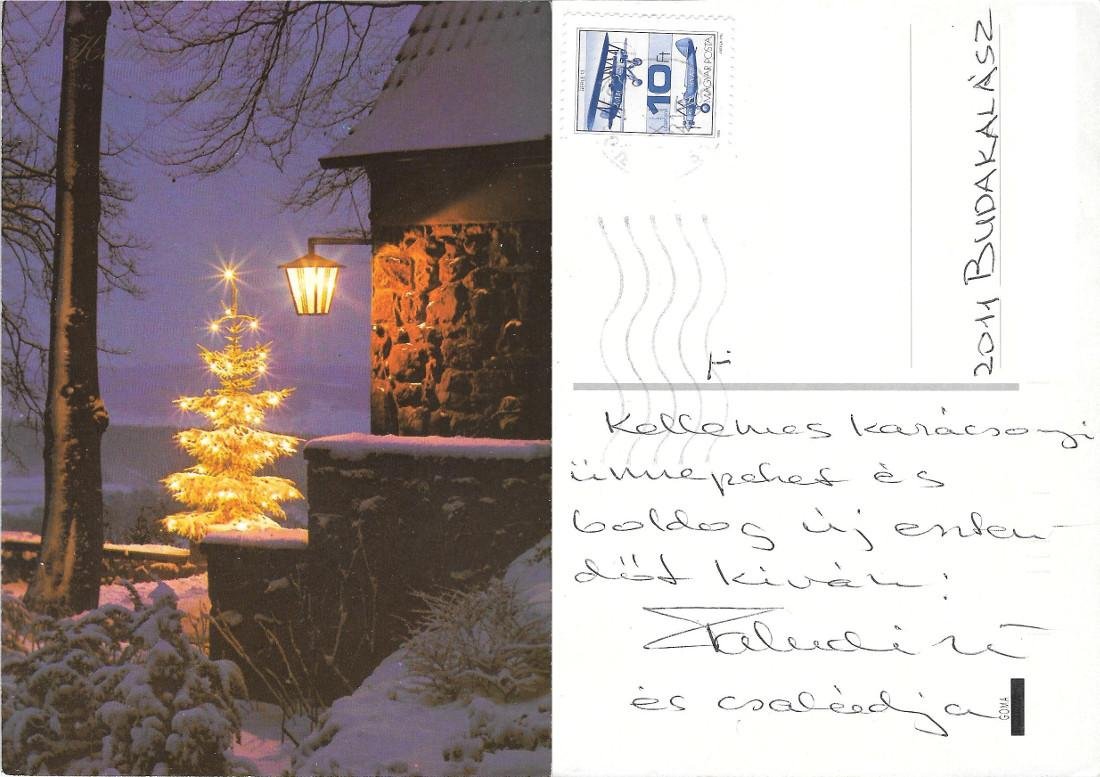 10 Ft
MAGYAR POSTA
T.
2011 BUDAKALÁSZ
Kellemes karácsonyi
ünnepeket és
boldog új eszten-
dőt kíván:
és családja
GOMA